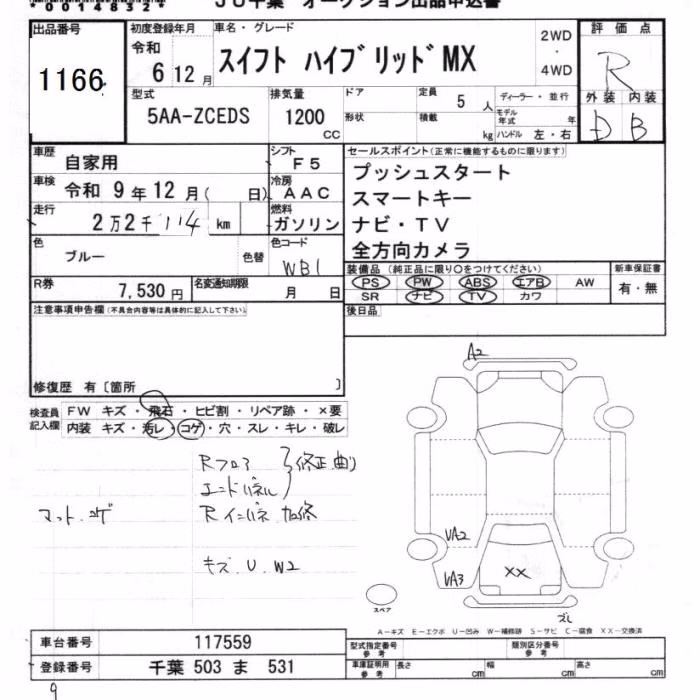 *0014832*
JU千葉 オークション出品申込書
出品番号 初度登録年月 車名・グレード 評価点
1166 令和 6 12月 スイフト ハイブリッドMX 2WD・4WD R
型式 排気量 ドア 定員 5人 ディーラー・並行 外装 内装
5AA-ZCEDS 1200 CC 形状 積載 kg モデル年式 年 ハンドル 左・右 D B
車歴 自家用 シフト F5 セールスポイント(正常に機能するものに限ります)
車検 令和 9年12月( 日) 冷房 AAC プッシュスタート
スマートキー
走行 2万2千114 km 燃料 ガソリン ナビ・TV
色 ブルー 色替 色コード WB1 全方向カメラ
装備品(純正品に限り○をつけてください) 新車保証書
R券 7,530円 名変通知期限 月 日 PS PW ABS エアB AW 有・無
SR ナビ TV カワ
注意事項申告欄(不具合内容等は具体的に記入して下さい) 後日品
修復歴 有〔箇所 〕
検査員記入欄 FW キズ・飛石・ヒビ割・リペア跡・×要
内装 キズ・汚レ・コゲ・穴・スレ・キレ・破レ
Rフロア 修正 曲り
エンドパネル
マット コゲ Rインパネ 加修
キズ U W2
A2
UA2
UA3
XX
ズレ
スペア
A-キズ E-エクボ U-凹み W-補修跡 S-サビ C-腐食 XX-交換済
車台番号 117559 型式指定番号 参考 類別区分番号 参考
登録番号 千葉 503 ま 531 車庫証明用 参考 長さ cm 幅 cm 高さ cm
9